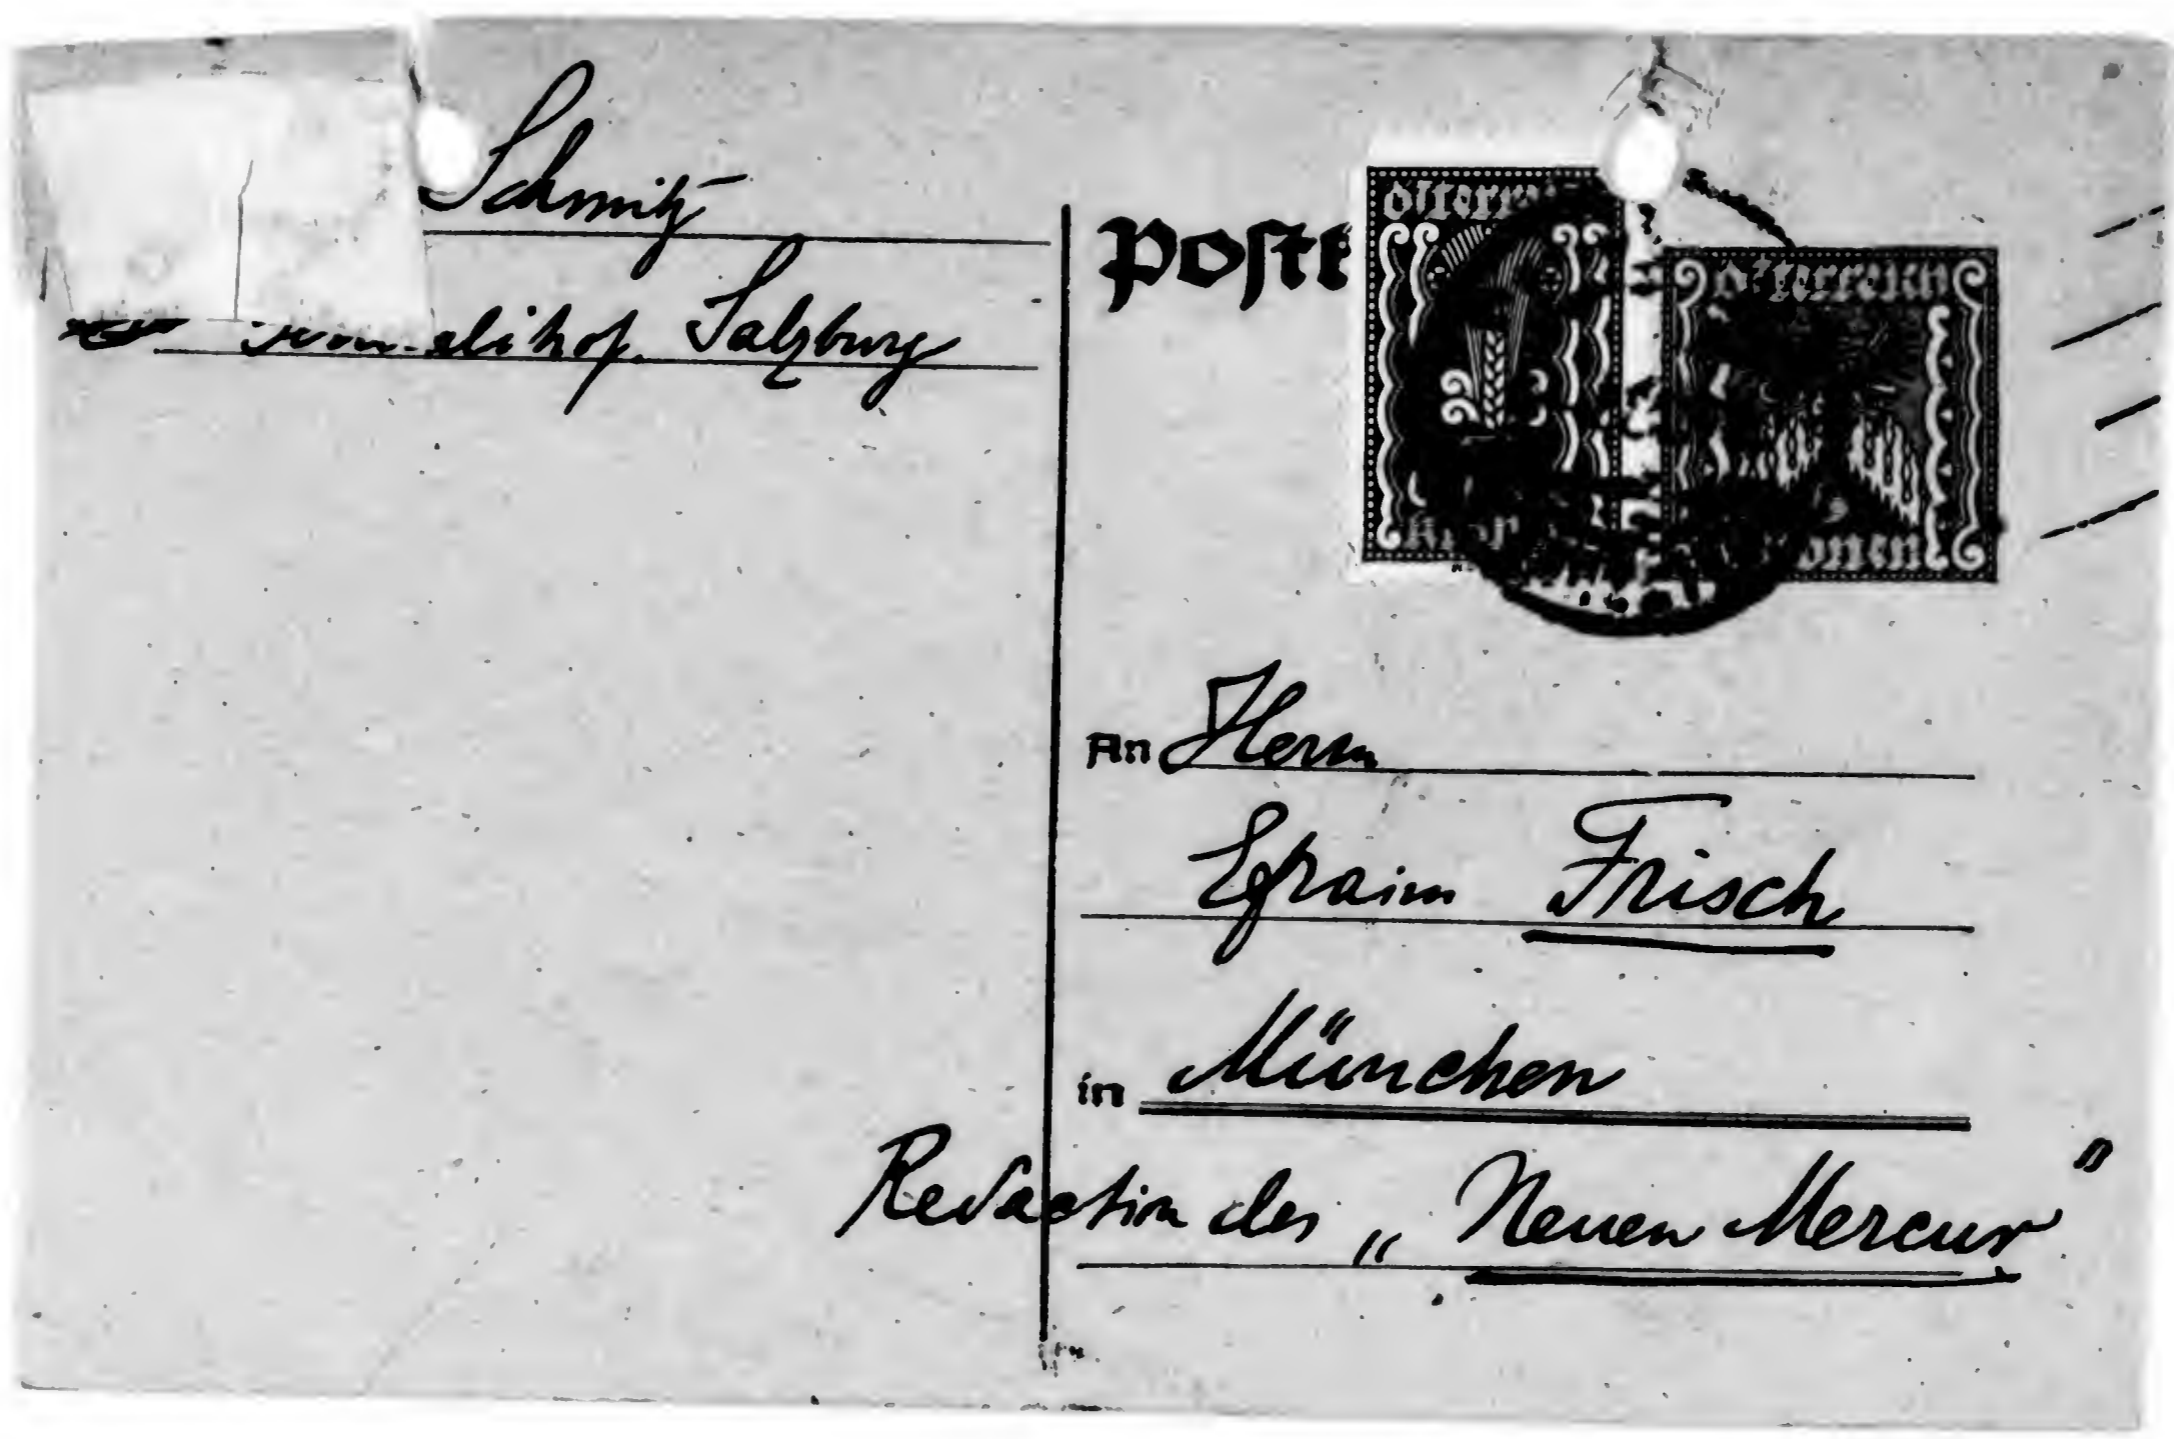 Schmitz
Salzburg
Postk
Österreich
Kronen
An Herrn
Efraim Frisch
in München
Redaction des „Neuen Mercur"